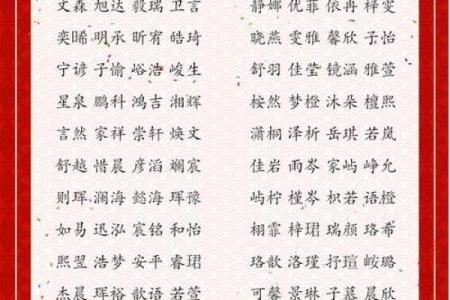 文森 旭达 毅瑞 卫言 静娜 优菲 依冉 梓雯
奕晞 明承 昕宥 皓琦 晓燕 雯雅 馨欣 子怡
宁谚 子愉 峪浩 峻生 舒羽 佳莹 镜涵 雅萱
星泉 鹏科 鸿吉 湘辉 桉然 梦橙 沐朵 檀熙
言然 家祥 崇轩 焕文 潇桐 泽析 岳琪 若岚
舒越 惜晨 彦滔 斓宸 佳岩 雨岑 家屿 峥允
则珲 澜海 懿海 珲豫 屿柠 槿岑 枳若 语橙
如易 迅泓 宸铭 和怡 栩霏 梓珺 瑞颜 珞希
熙翌 浩梦 安平 睿珺 珞歆 洛瑾 抒瑄 峖璐
杰晨 珲裕 歆语 若萱 可馨 景琳 子慕 晨欣